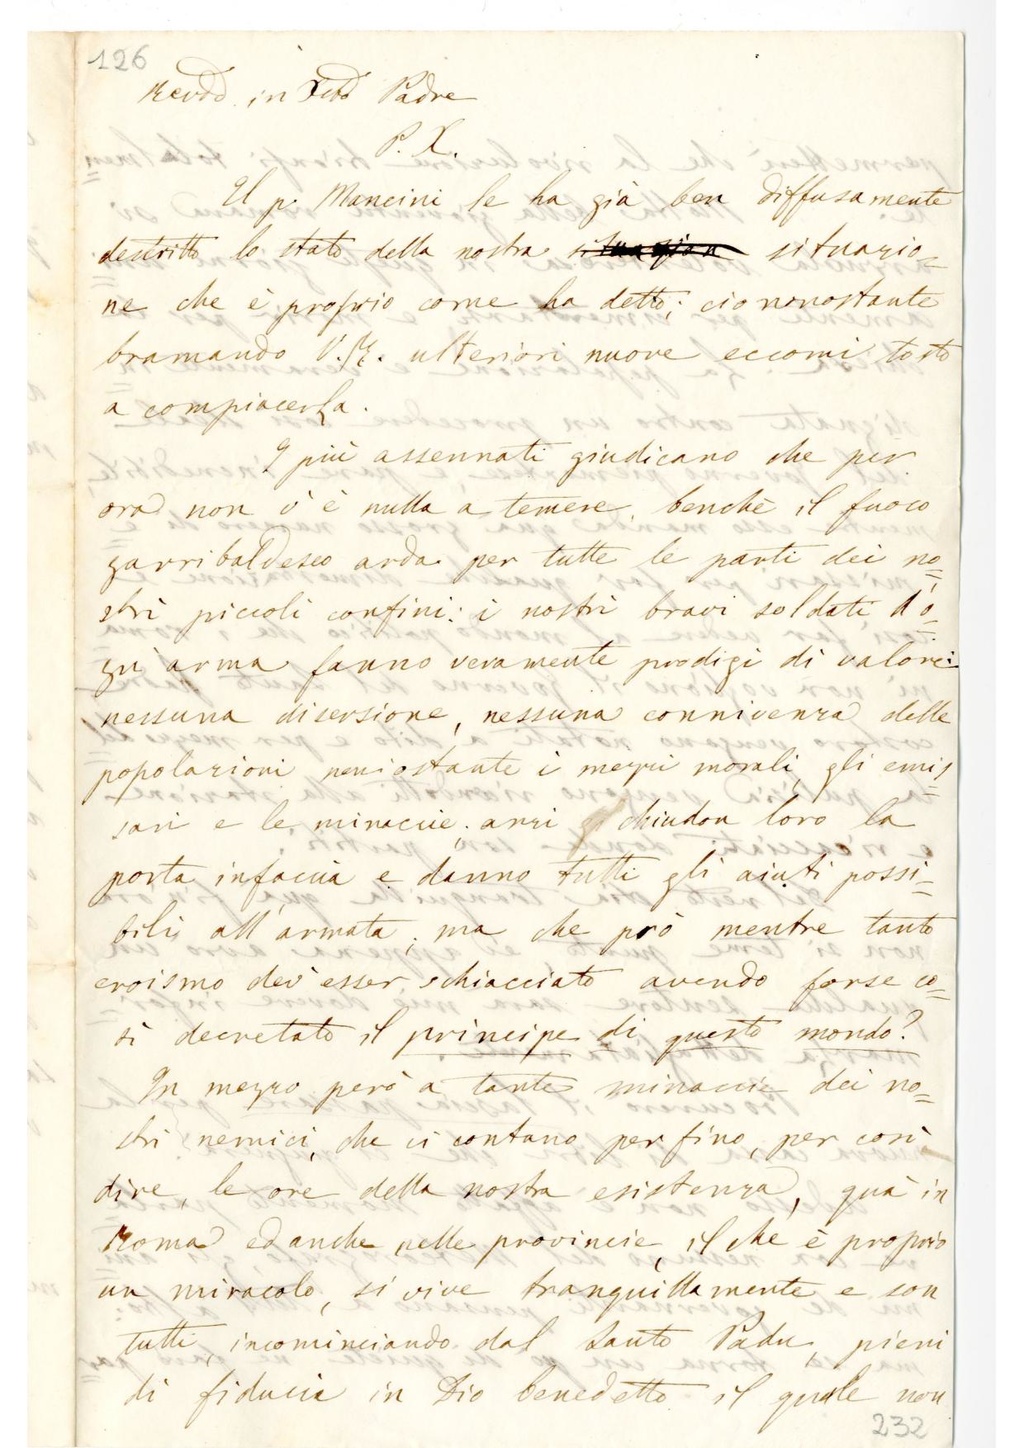 126
Revdo in Xto Padre
P. X.
Il p. Mancini le ha già ben diffusamente
descritto lo stato della nostra situazio=
ne che è proprio come ha detto; ciononostante
bramando V. R. ulteriori nuove eccomi tosto
a compiacerla.
I più assennati giudicano che per
ora non v'è nulla a temere, benchè il fuoco
garribaldesco arda per tutte le parti dei no=
stri piccoli confini: i nostri bravi soldati d'o=
gn'arma fanno veramente prodigi di valore:
nessuna diserzione, nessuna connivenza delle
popolazioni nonostante i mezzi morali, gli emis
sari e le minaccie, anzi chiudon loro la
porta infaccia e danno tutti gli aiuti possi=
bili all'armata; ma che prò mentre tanto
eroismo dev'esser schiacciato avendo forse co=
sì decretato il principe di questo mondo?
In mezzo però a tante minaccie dei no=
stri nemici, che ci contano per fino, per così
dire, le ore della nostra esistenza, quà in
Roma ed anche nelle provincie, il che è proprio
un miracolo, si vive tranquillamente e son
tutti, incominciando dal Santo Padre, pieni
di fiducia in Dio benedetto il quale non
232